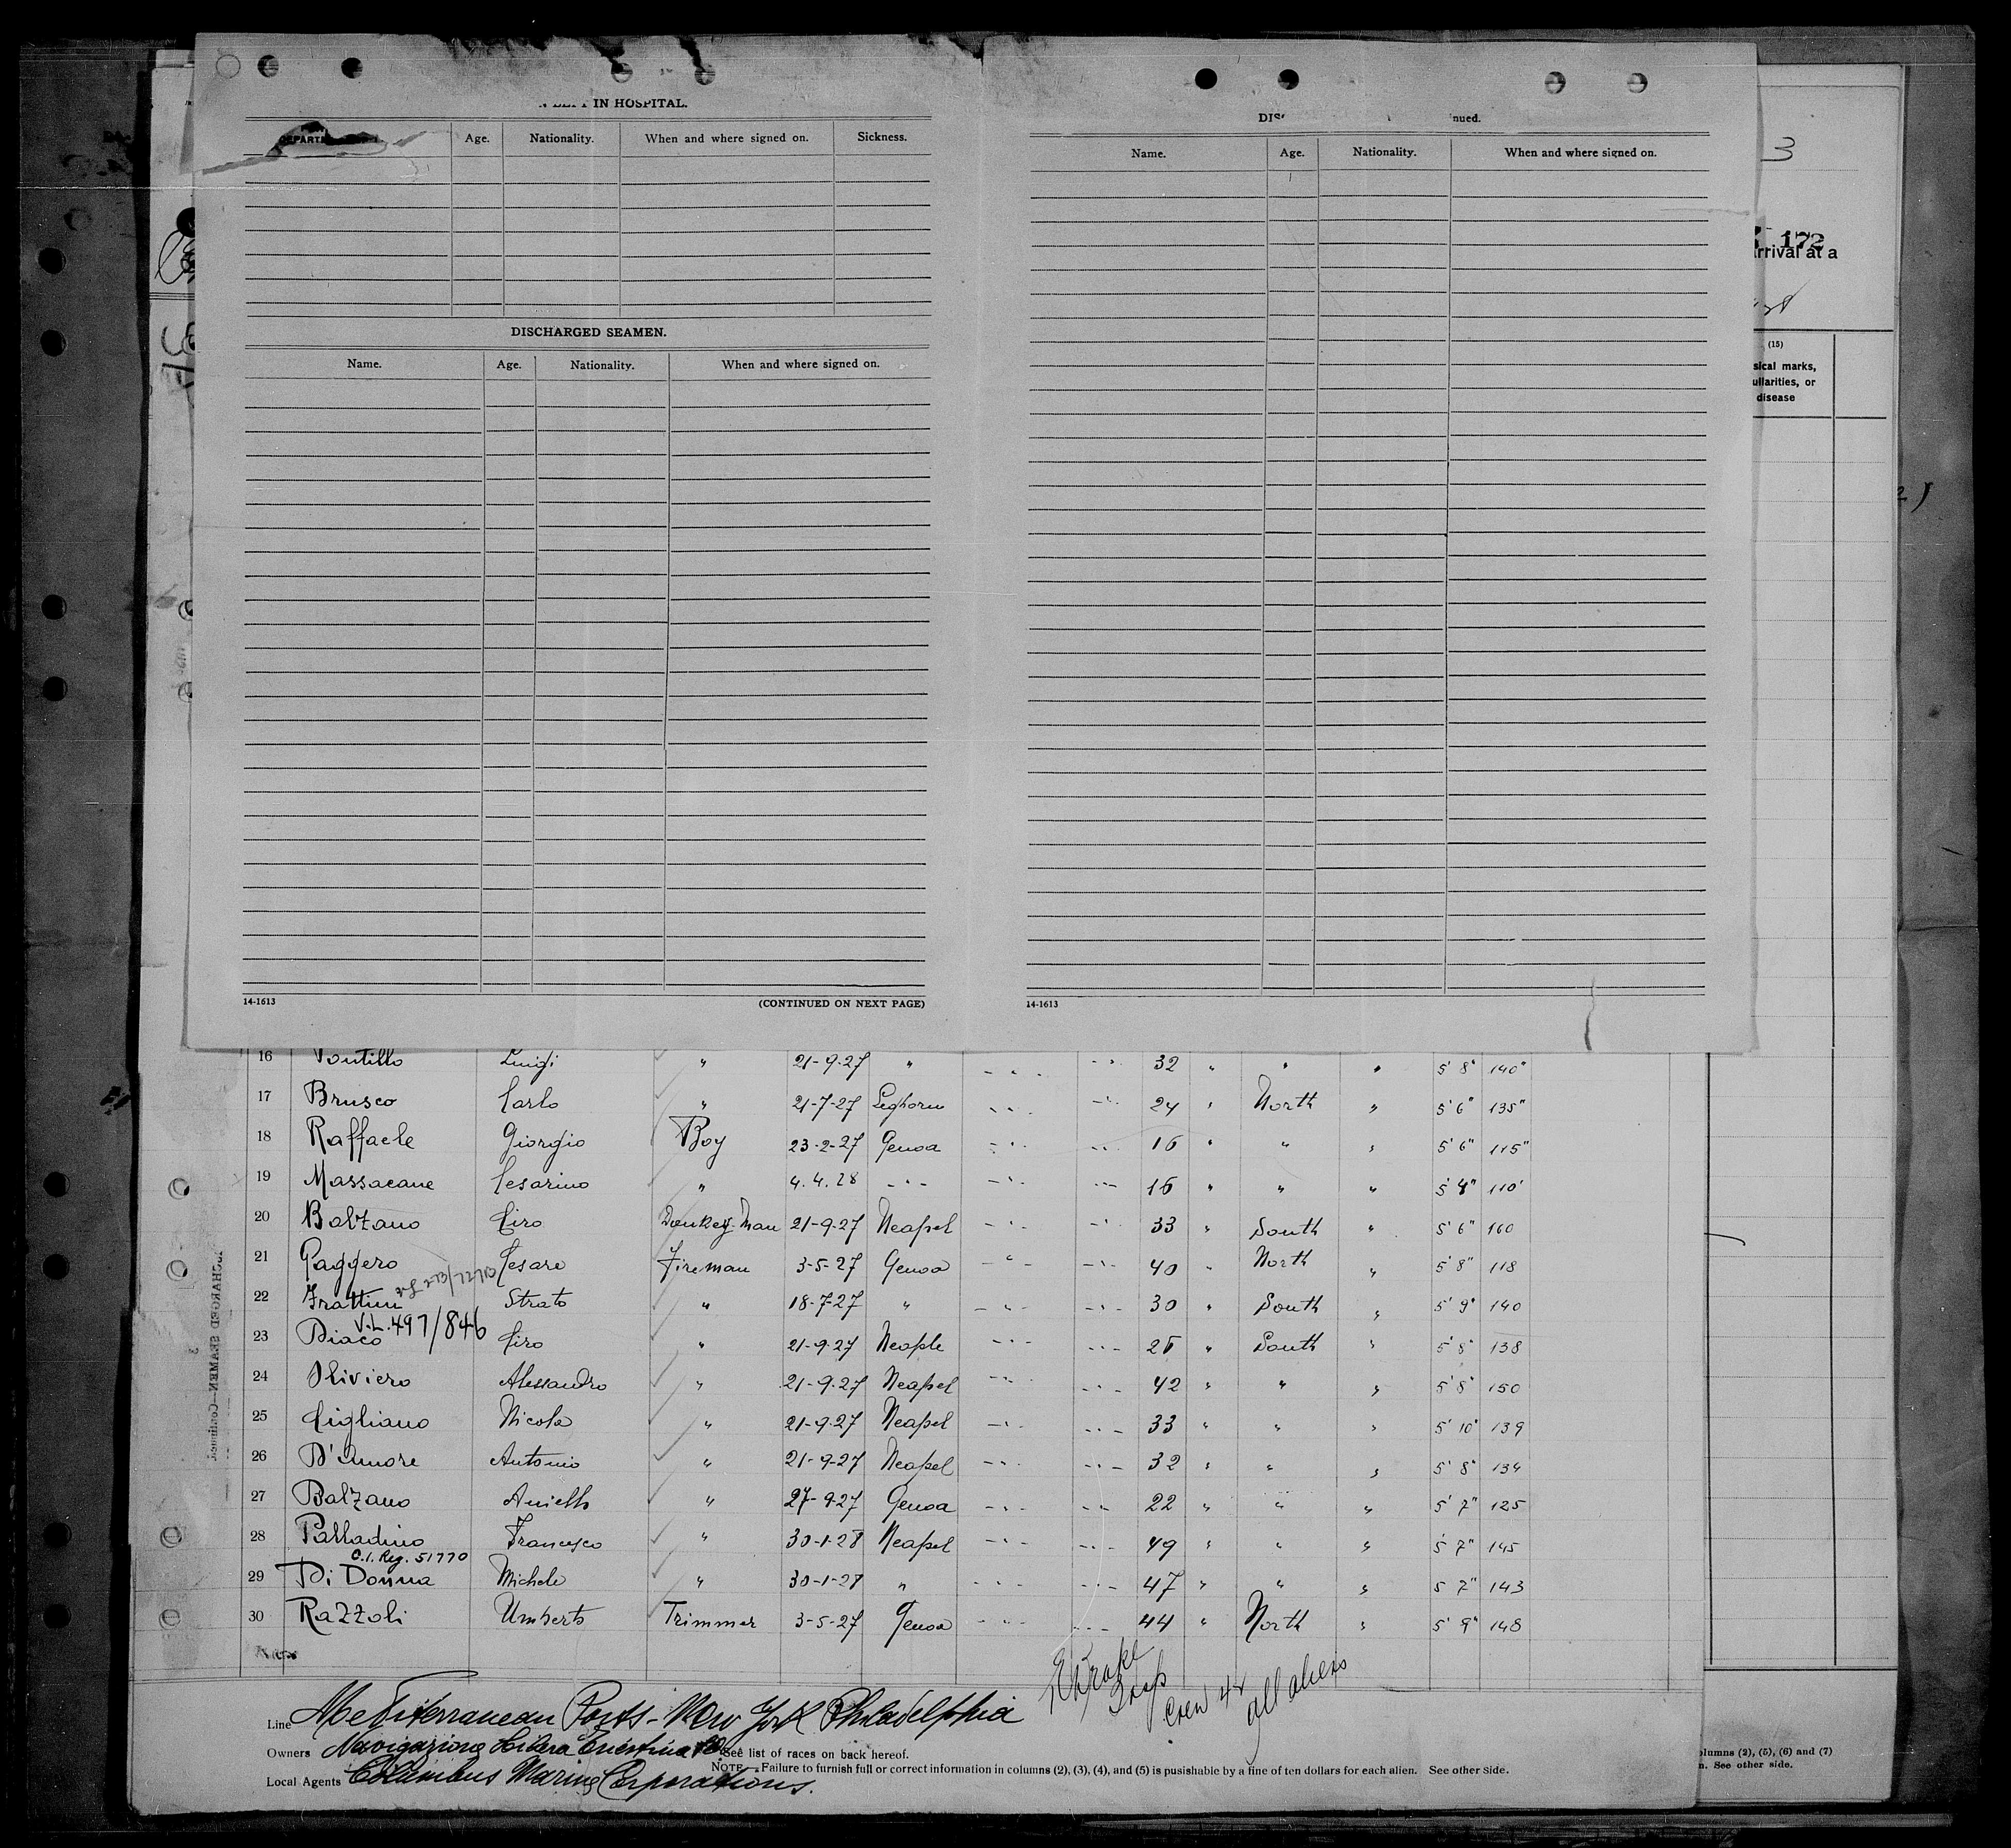 IN HOSPITAL.
Age. Nationality. When and where signed on. Sickness.
DISCHARGED SEAMEN.
Name. Age. Nationality. When and where signed on.
14-1613 (CONTINUED ON NEXT PAGE)
nued.
Name. Age. Nationality. When and where signed on.
14-1613
3
172
rrival at a
(15)
sical marks,
uliarities, or
disease
16 Pontillo Luigi " 21-9-27 " 32 " " " 5' 8" 140"
17 Brusco Carlo " 21-7-27 Leghorn 24 " North " 5' 6" 135"
18 Raffaele Giorgio Boy 23-2-27 Genoa 16 " " " 5' 6" 115"
19 Massacane Cesarino " 4.4.28 16 " " " 5' 4" 110'
20 Balzano Ciro Donkey-Man 21-9-27 Neapel 33 " South " 5' 6" 160
21 Gaggero Cesare Fireman 3-5-27 Genoa 40 " North " 5' 8" 118
22 Frattini Strato " 18-7-27 " 30 " South " 5' 9" 140
V.L. 497/846
23 Diaco Ciro " 21-9-27 Neaple 26 " South " 5' 8" 138
24 Oliviero Alessandro " 21-9-27 Neapel 42 " " " 5' 8" 150
25 Cigliano Nicola " 21-9-27 Neapel 33 " " " 5' 10" 139
26 D'Amore Antonio " 21-9-27 Neapel 32 " " " 5' 8" 134
27 Balzano Aniello " 27-9-27 Genoa 22 " " " 5' 7" 125
28 Palladino Francesco " 30-1-28 Neapel 49 " " " 5' 7" 145
C.I. Reg. 51770
29 Di Donna Michele " 30-1-28 " 47 " " " 5 7" 143
30 Razzoli Umberto Trimmer 3-5-27 Genoa 44 " North " 5' 9" 148
Crew 44
all aliens
Line Mediterranean Ports - New York Philadelphia
Owners Navigazione Libera Triestina See list of races on back hereof.
NOTE.—Failure to furnish full or correct information in columns (2), (3), (4), and (5) is punishable by a fine of ten dollars for each alien. See other side.
Local Agents Columbus Marine Corporations.
olumns (2), (5), (6) and (7)
n. See other side.
DISCHARGED SEAMEN—Continued.